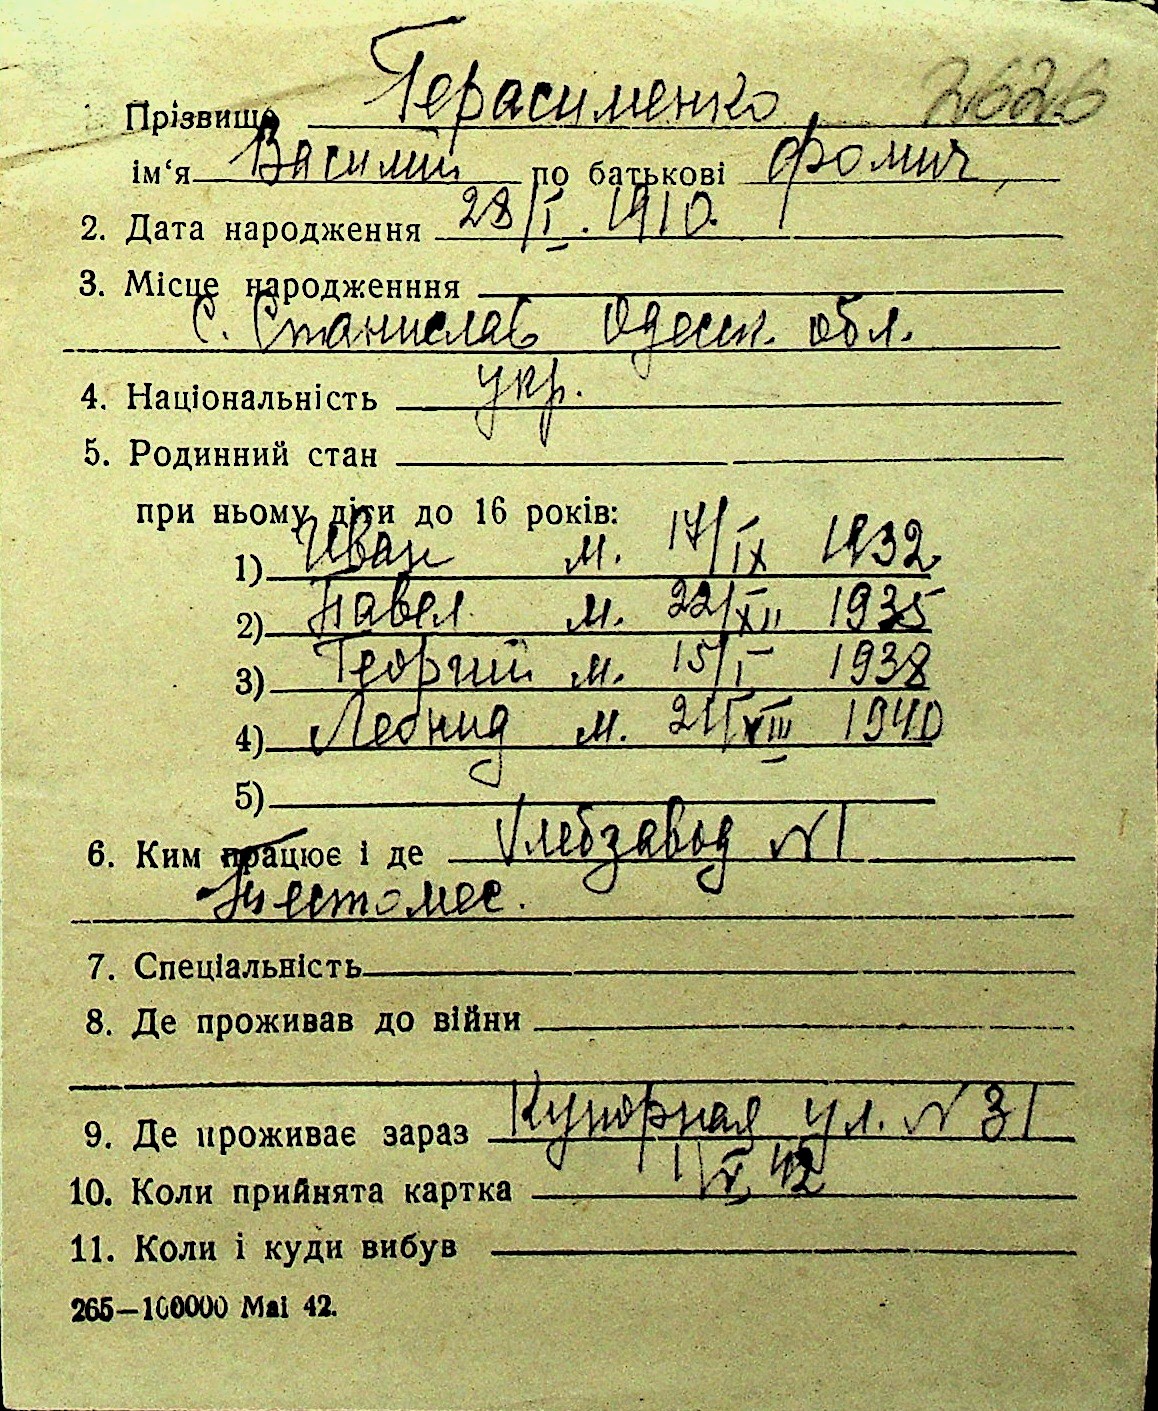 2626
Прізвище Герасименко
ім‘я Василий по батькові Фомич
2. Дата народження 28/I. 1910.
3. Місце народженння
С. Станислав Одесск. обл.
4. Національність укр.
5. Родинний стан
при ньому діти до 16 років:
1) Иван м. 17/IX 1932
2) Павел м. 22/XII 1935
3) Георгий м. 15/I 1938
4) Леонид м. 1940
5)
6. Ким працює і де Хлебзавод №1
Тестомес.
7. Спеціальність
8. Де проживав до війни
9. Де проживає зараз Купорная ул. № 31
10. Коли прийнята картка 1/V 42
11. Коли і куди вибув
265—100000 Mai 42.